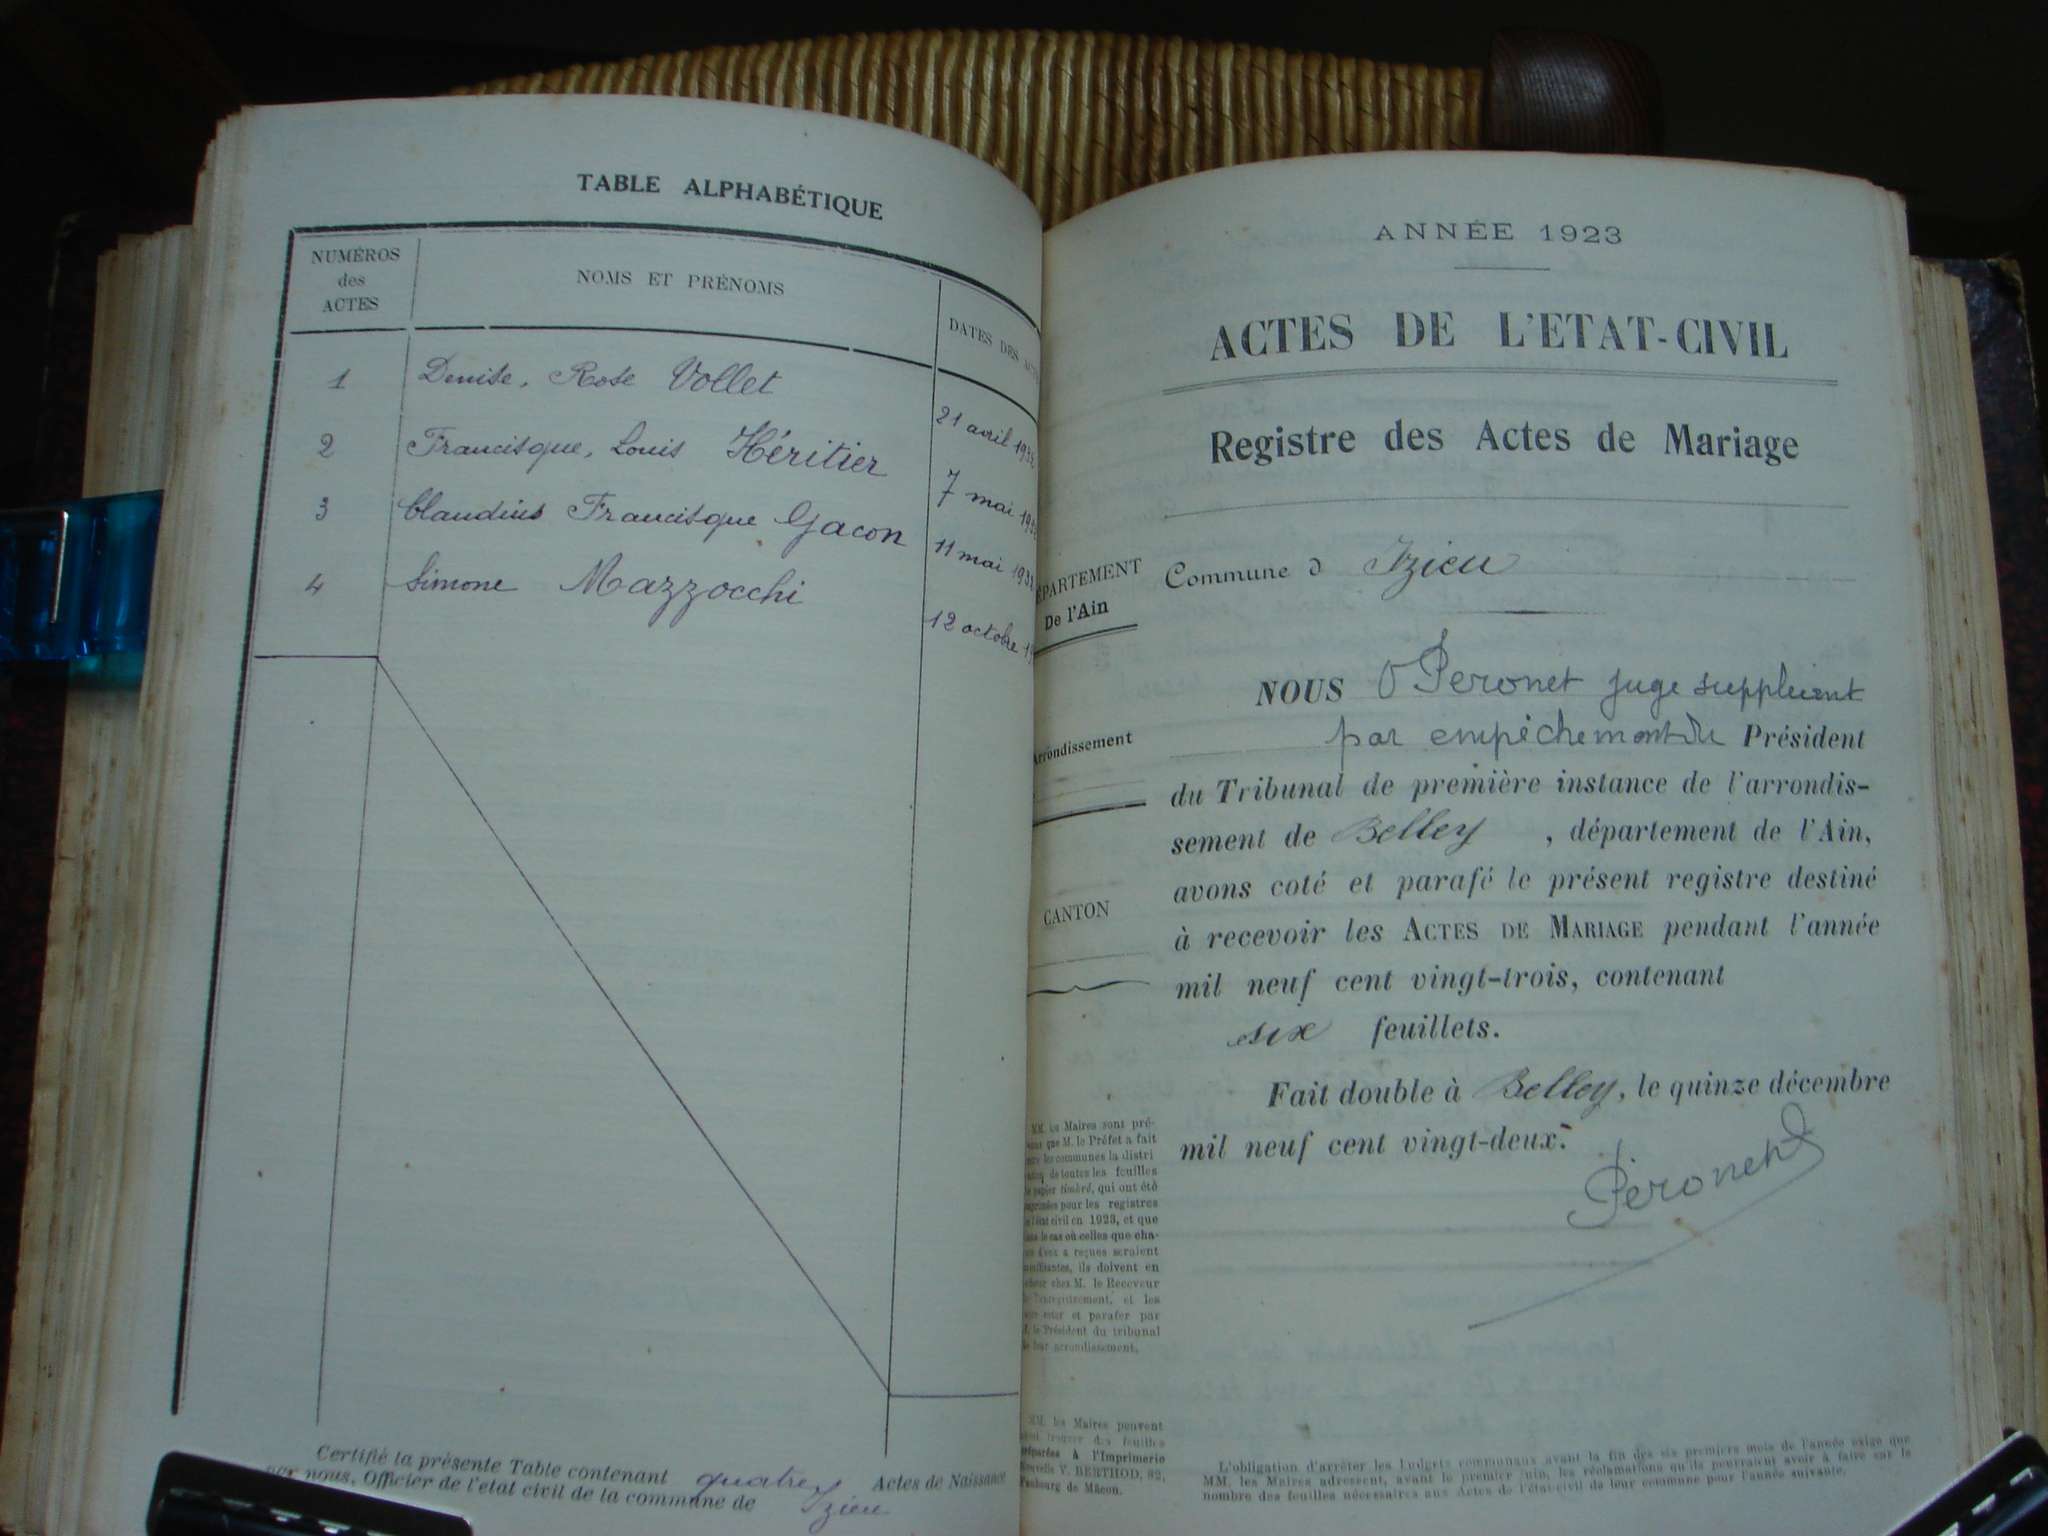 TABLE ALPHABÉTIQUE
NUMÉROS
des
ACTES
NOMS ET PRÉNOMS
DATES DES
1 Denise, Rose Vollet 21 avril
2 Francisque, Louis Héritier 7 mai
3 Claudius Francisque Gacon 11 mai
4 Simone Mazzocchi 12 octobre
Certifié la présente Table contenant quatre Actes de Naissance
par nous, Officier de l'état civil de la commune de Izieu
ANNÉE 1923
ACTES DE L'ETAT-CIVIL
Registre des Actes de Mariage
DÉPARTEMENT
De l'Ain
Arrondissement
CANTON
Commune d Izieu
NOUS Peronet juge suppléant
par empêchement du Président
du Tribunal de première instance de l'arrondis-
sement de Belley, département de l'Ain,
avons coté et parafé le présent registre destiné
à recevoir les ACTES DE MARIAGE pendant l'année
mil neuf cent vingt-trois, contenant
six feuillets.
Fait double à Belley, le quinze décembre
mil neuf cent vingt-deux.
Peronet
MM. les Maires sont pré-
que M. le Préfet a fait
les communes la distri
de toutes les feuilles
papier timbré, qui ont été
imprimées pour les registres
civil en 1923, et que
le cas où celles que cha-
d'eux a reçues seraient
insuffisantes, ils doivent en
chez M. le Receveur
l'enregistrement, et les
coter et parafer par
le Président du tribunal
de leur arrondissement.
MM. les Maires peuvent
trouver des feuilles
préparées à l'Imprimerie
Nouvelle V. BERTHOD, 82,
Faubourg de Mâcon.
L'obligation d'arrêter les budgets communaux avant la fin des six premiers mois de l'année exige que
MM. les Maires adressent, avant le premier juin, les réclamations qu'ils pourraient avoir à faire sur le
nombre des feuilles nécessaires aux Actes de l'état-civil de leur commune pour l'année suivante.